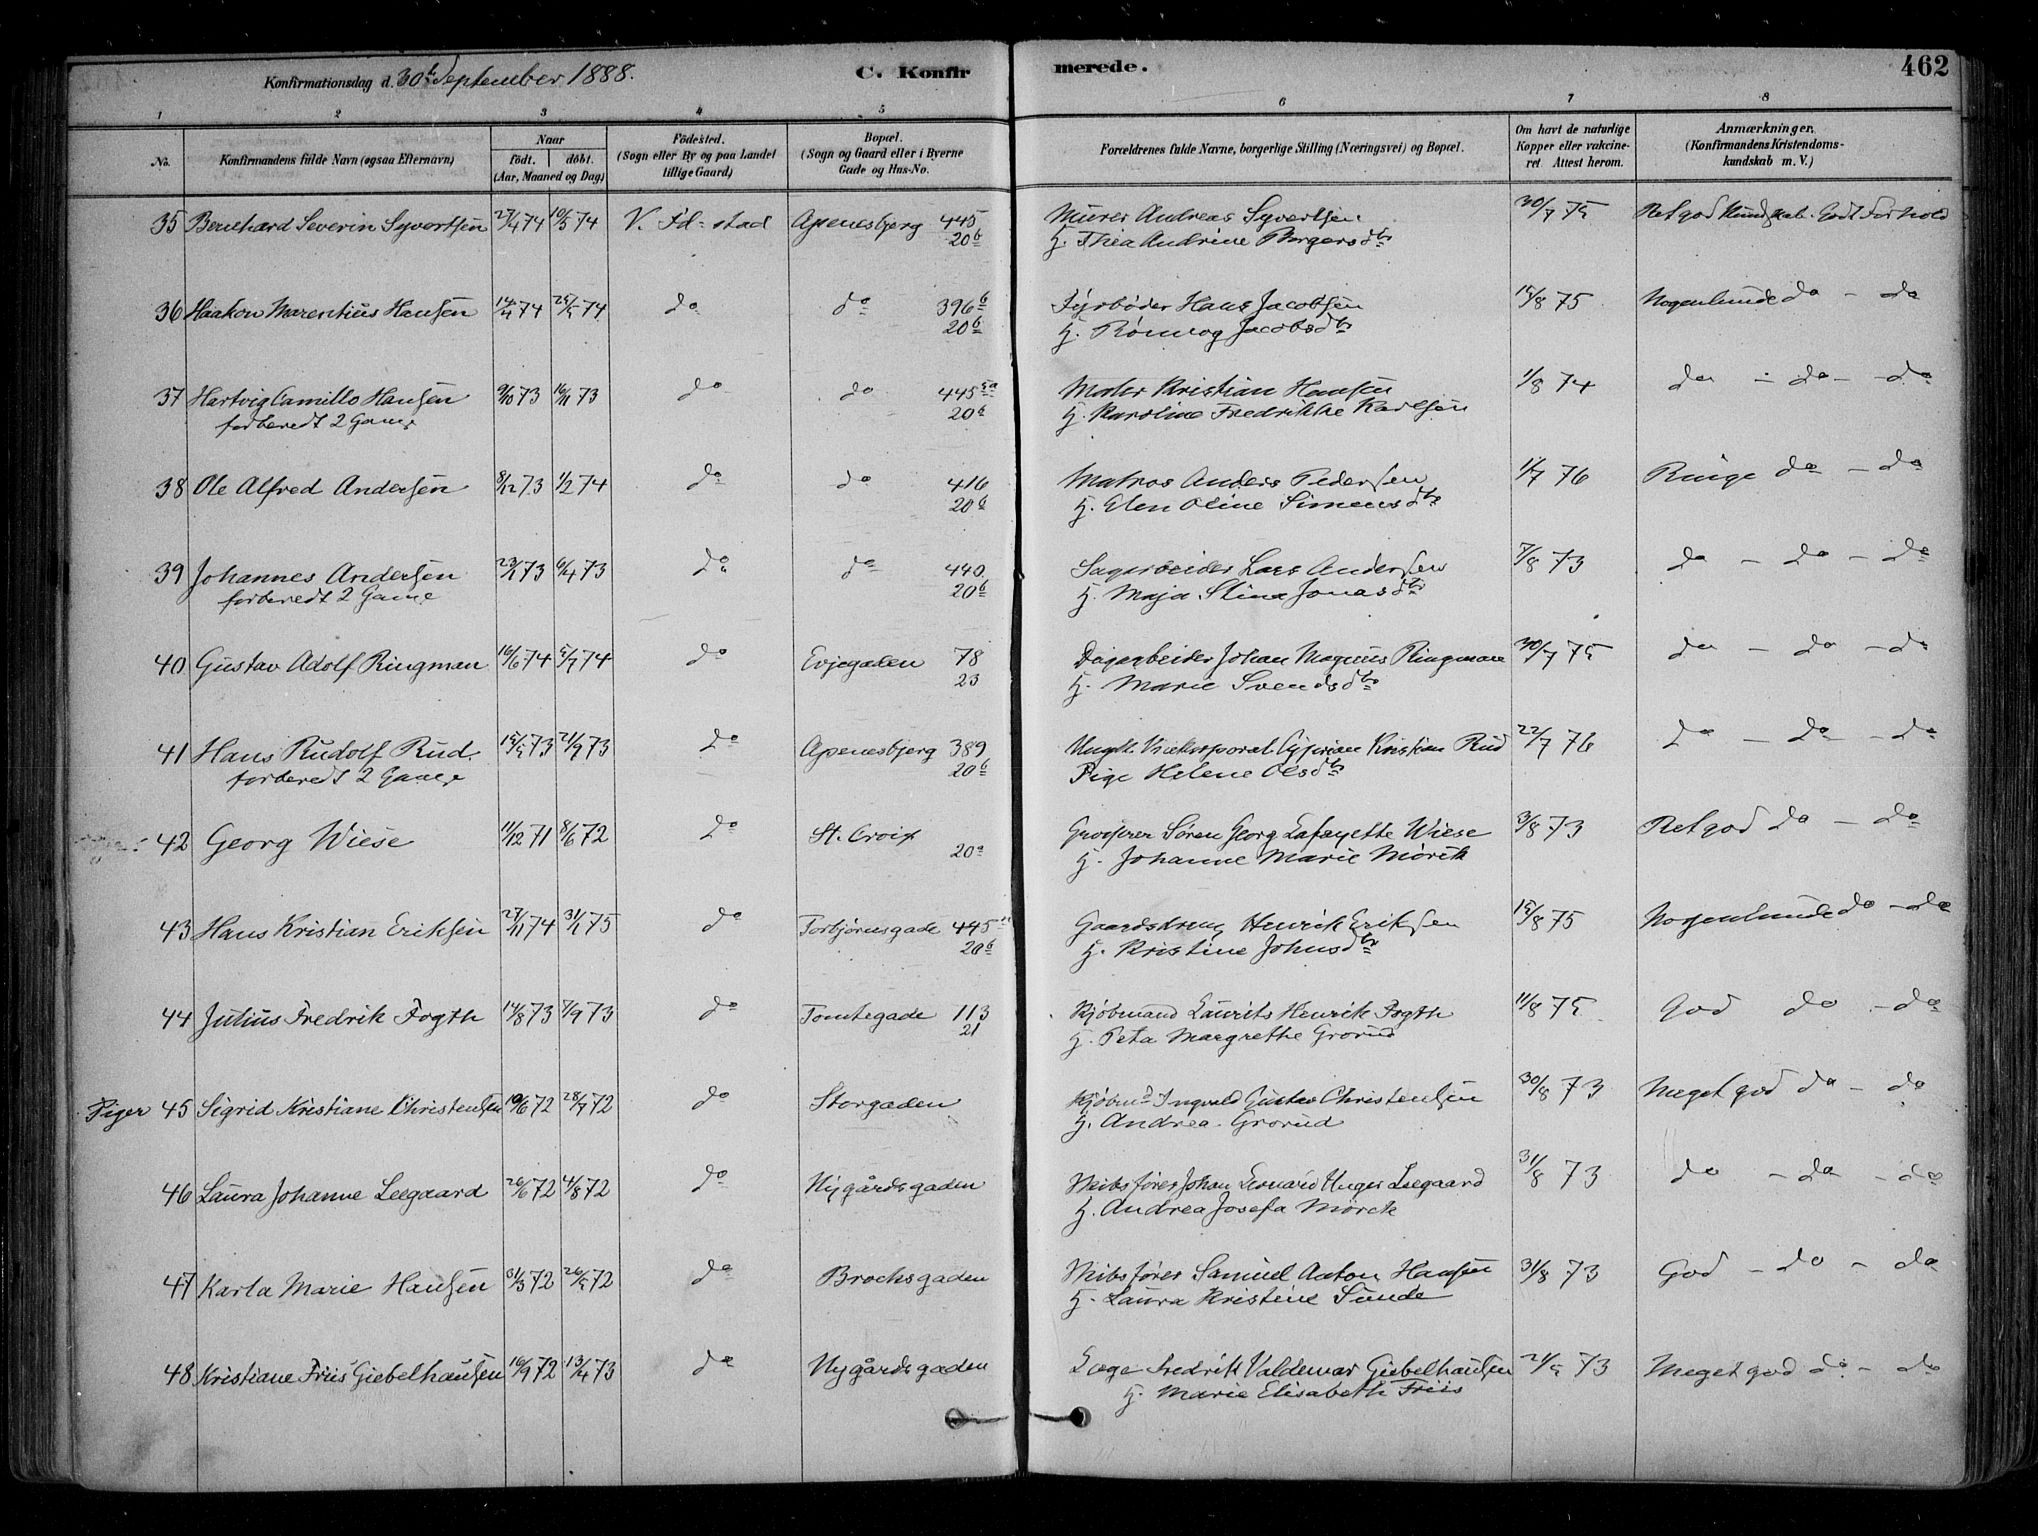 Konfirmationsdag d. 30te September 1888.
C. Konfir
merede.
462
1 2 3 4 5 6 7 8
No. Konfirmandens fulde Navn (ogsaa Efternavn) Naar födt. döbt. (Aar, Maaned og Dag) Födested. (Sogn eller By og paa Landet tillige Gaard) Bopæl. (Sogn og Gaard eller i Byerne Gade og Hus-No. Forældrenes fulde Navne, borgerlige Stilling (Næringsvei) og Bopæl. Om havt de naturlige Kopper eller vakcineret Attest herom. Anmærkninger. (Konfirmandens Kristendomskundskab m. V.)
35 Bernhard Severin Syvertsen 27/4 74 10/5 74 V. Fd-stad Apenesbjerg 445 Murer Andreas Syvertsen 30/7 75 Ret god Kundskab. Godt Forhold
20b H. Thea Andrine Borgersdtr
36 Haakon Marentius Hansen 14/4 74 25/5 74 do do 396b Fyrbøder Hans Jacobsen 15/8 75 Nogenlunde do - do
20b H. Rønnog Jacobsdtr
37 Hartvig Camillo Hansen 9/10 73 16/11 73 do do 445 Maler Kristian Hansen 1/8 74 do - do - do
forberedt 2 Gange 20b H. Karoline Fredrikke Karlsen
38 Ole Alfred Andersen 8/12 73 1/2 74 do do 416 Matros Anders Pedersen 1/7 76 Ringe do - do
20b H. Elen Oline Simensdtr
39 Johannes Andersen 23/1 73 6/4 73 do do 440 Sagarbeider Lars Andersen 7/8 73 do - do - do
forberedt 2 Gange 20b H. Maja Stina Jonasdtr
40 Gustav Adolf Ringman 16/6 74 5/7 74 do Evjegaden 78 Dagarbeider Johan Magnus Ringman 30/7 75 do - do - do
23 H. Marie Svendsdtr
41 Hans Rudolf Rud. 15/5 73 21/9 73 do Apenesbjerg 389 Ungk. Vicekorporal Cyprian Kristian Rud 22/7 76 do - do - do
forberedt 2 Gange 20b Pige Helene Olsdtr
42 Georg Wiese 11/12 71 8/6 72 do St. Croix Grosserer Søren Georg Lafayette Wiese 3/8 73 Ret god do - do
20a H. Johanne Marie Mørck
43 Hans Kristian Eriksen 27/11 74 31/1 75 do Torbjørnsgade 445 Gaardskreng Henrik Eriksen 15/8 75 Nogenlunde do - do
20b H. Kristine Johnsdtr
44 Julius Fredrik Fogth 14/8 73 7/9 73 do Tomtegade 113 Kjøbmand Laurits Henrik Fogth 11/8 75 God do - do
21 H. Peta Margrethe Grorud
Piger 45 Sigrid Kristiane Christensen 10/6 72 28/7 72 do Storgaden Kjøbmd Ingvald Gustav Christensen 30/8 73 Meget god do - do
H. Andrea Grorud
46 Laura Johanne Leegaard 20/6 72 4/8 72 do Nygårdsgaden Skibsfører Johan Leonard Unger Leegaard 31/8 73 do - do - do
H. Andrea Josefa Mørck
47 Karla Marie Hansen 31/3 72 26/5 72 do Brochsgaden Skibsfører Samuel Anton Hansen 31/8 73 God - do - do
H. Laura Kristine Sunde
48 Kristiane Friis Giebelhausen 16/9 72 13/4 73 do Nygårdsgaden Læge Fredrik Valdemar Giebelhausen 21/5 73 Meget god do - do
H. Marie Elisabeth Friis